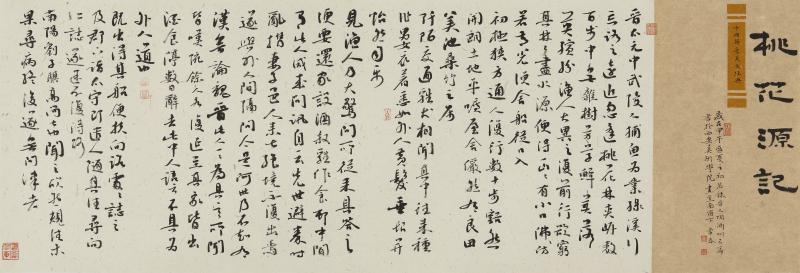 桃花源記
晉太元中武陵人捕魚為業緣溪行
忘路之遠近忽逢桃花林夾岸數
百步中無雜樹芳草鮮美落
英繽紛漁人異之復前行欲窮
其林林盡水源便得一山山有小口彷彿
若有光便舍船從口入
初極狹才通人復行數十步豁然
開朗土地平曠屋舍儼然有良田
美池桑竹之屬
阡陌交通雞犬相聞其中往來種
作男女衣著悉如外人黃髮垂髫并
怡然自樂
見漁人乃大驚問所從來具答之
便要還家設酒殺雞作食村中聞
有此人咸來問訊自云先世避秦時
亂妻子邑人來此絕境不復出焉
遂與外人間隔問今是何世乃不知有
漢無論魏晉此人一一為具言所聞
皆嘆惋餘人各復延至其家皆出
酒食停數日辭去此中人語云不足為
外人道也
既出得其船便扶向路處處誌之
及郡下詣太守即遣人隨其往尋向
誌遂迷不復得路
南陽劉子驥高尚士也聞之欣然規往未
果尋病終後遂無問津者